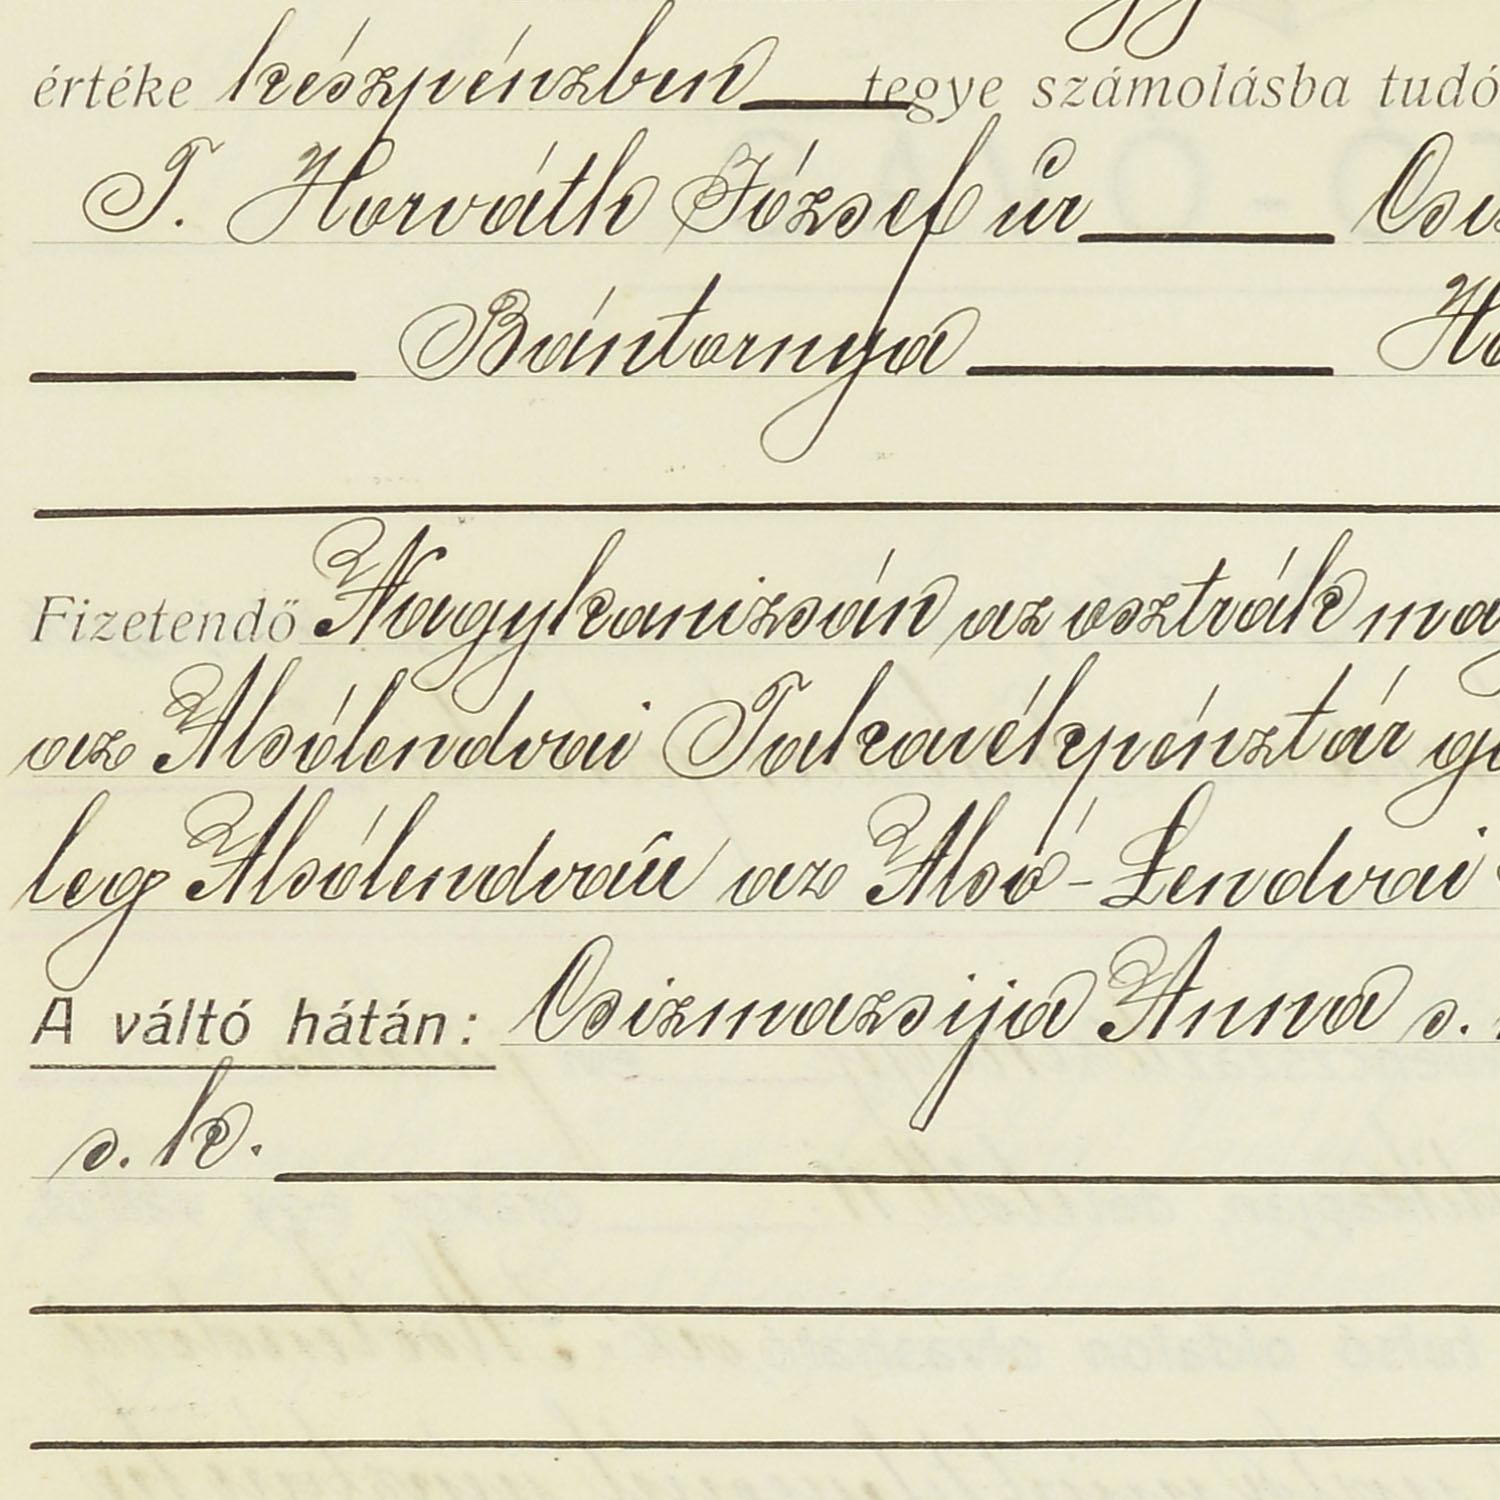 értéke készpénzben tegye számolásba tudó
T. Horváth József úr Csi
Bántornya Ho
Fizetendő Nagykanizsán az osztrák mag
az Alsólendvai Takarékpénztár
leg Alsólendván az Alsó-Lendvai
A váltó hátán: Csizmazsija Anna s.
s. k.